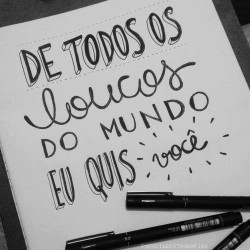 DE TODOS OS
loucos
DO MUNDO
EU QUIS você